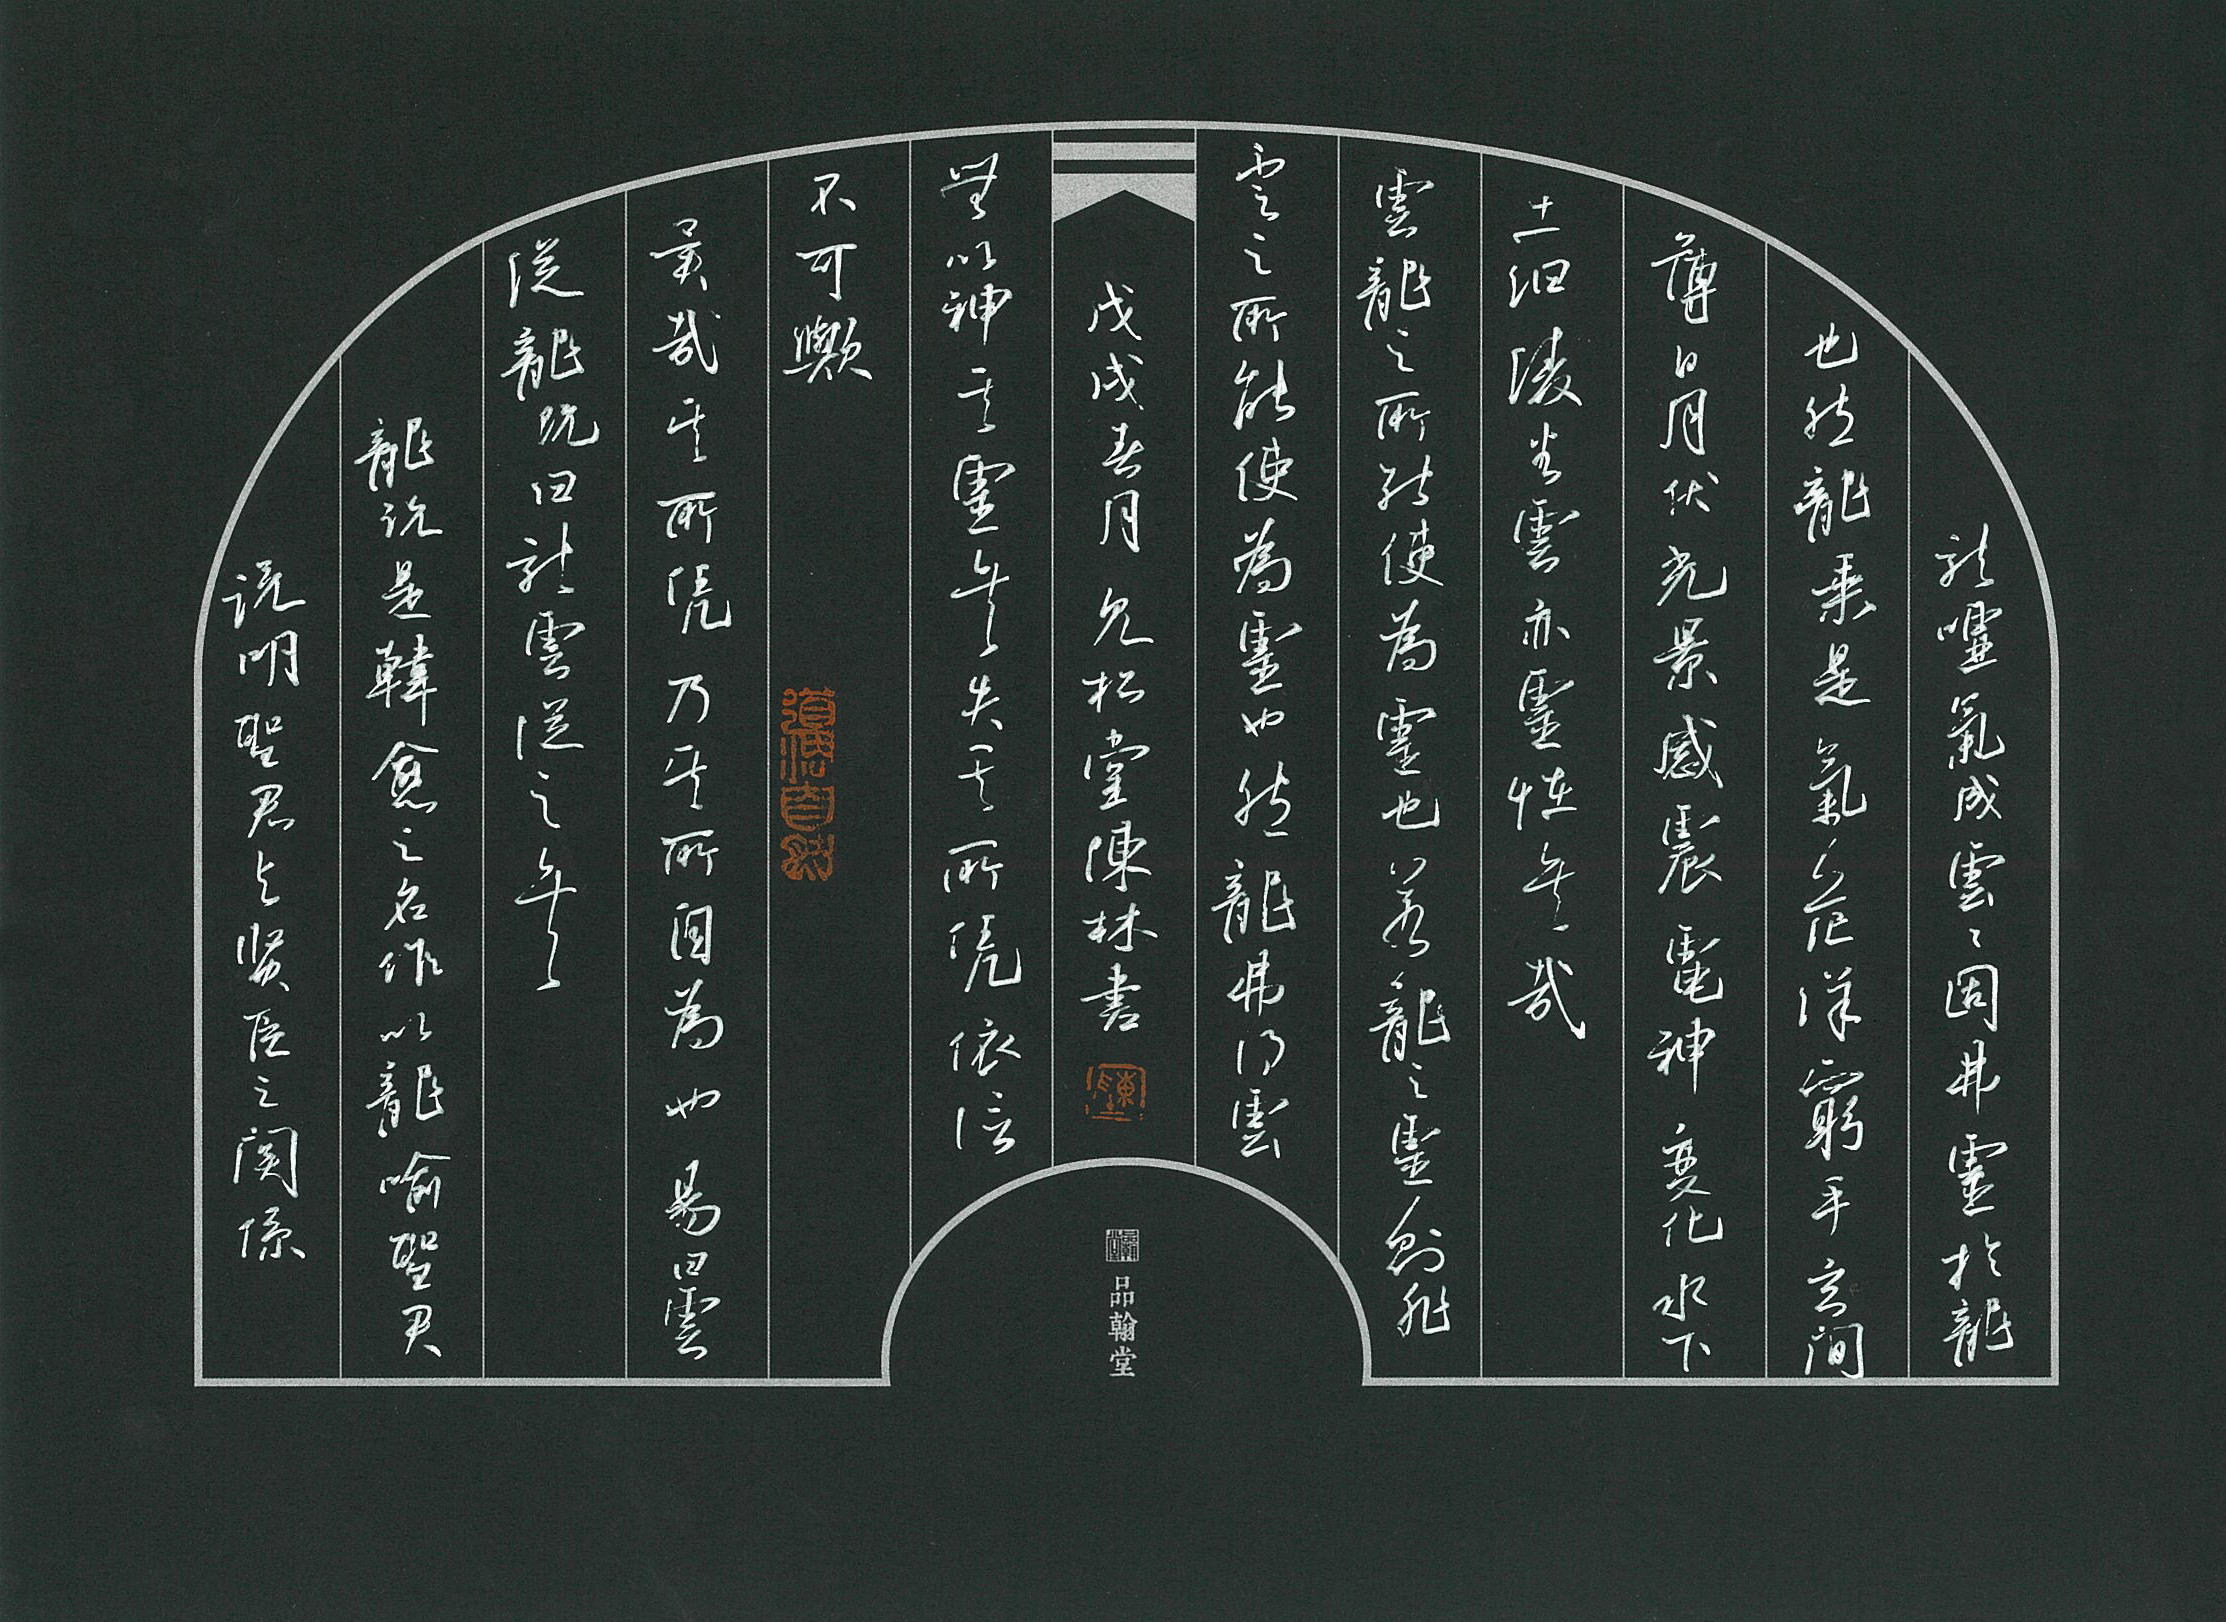 龍嘘氣成雲々固弗靈於龍
也然龍乘是氣茫洋窮乎玄間
薄日月伏光景感震電神變化水下
土汨陵谷雲亦靈怪矣哉
雲龍之所能使為靈也若龍之靈則非
雲之所能使為靈也然龍弗得雲
戊戌春月允松堂陳林書
無以神其靈矣失其所凭依信
不可歟
道法自然
異哉其所凭乃其所自為也易曰雲
從龍既曰龍雲從之矣
龍說是韓愈之名作以龍喻聖君
說明聖君与賢臣之関係
品翰堂